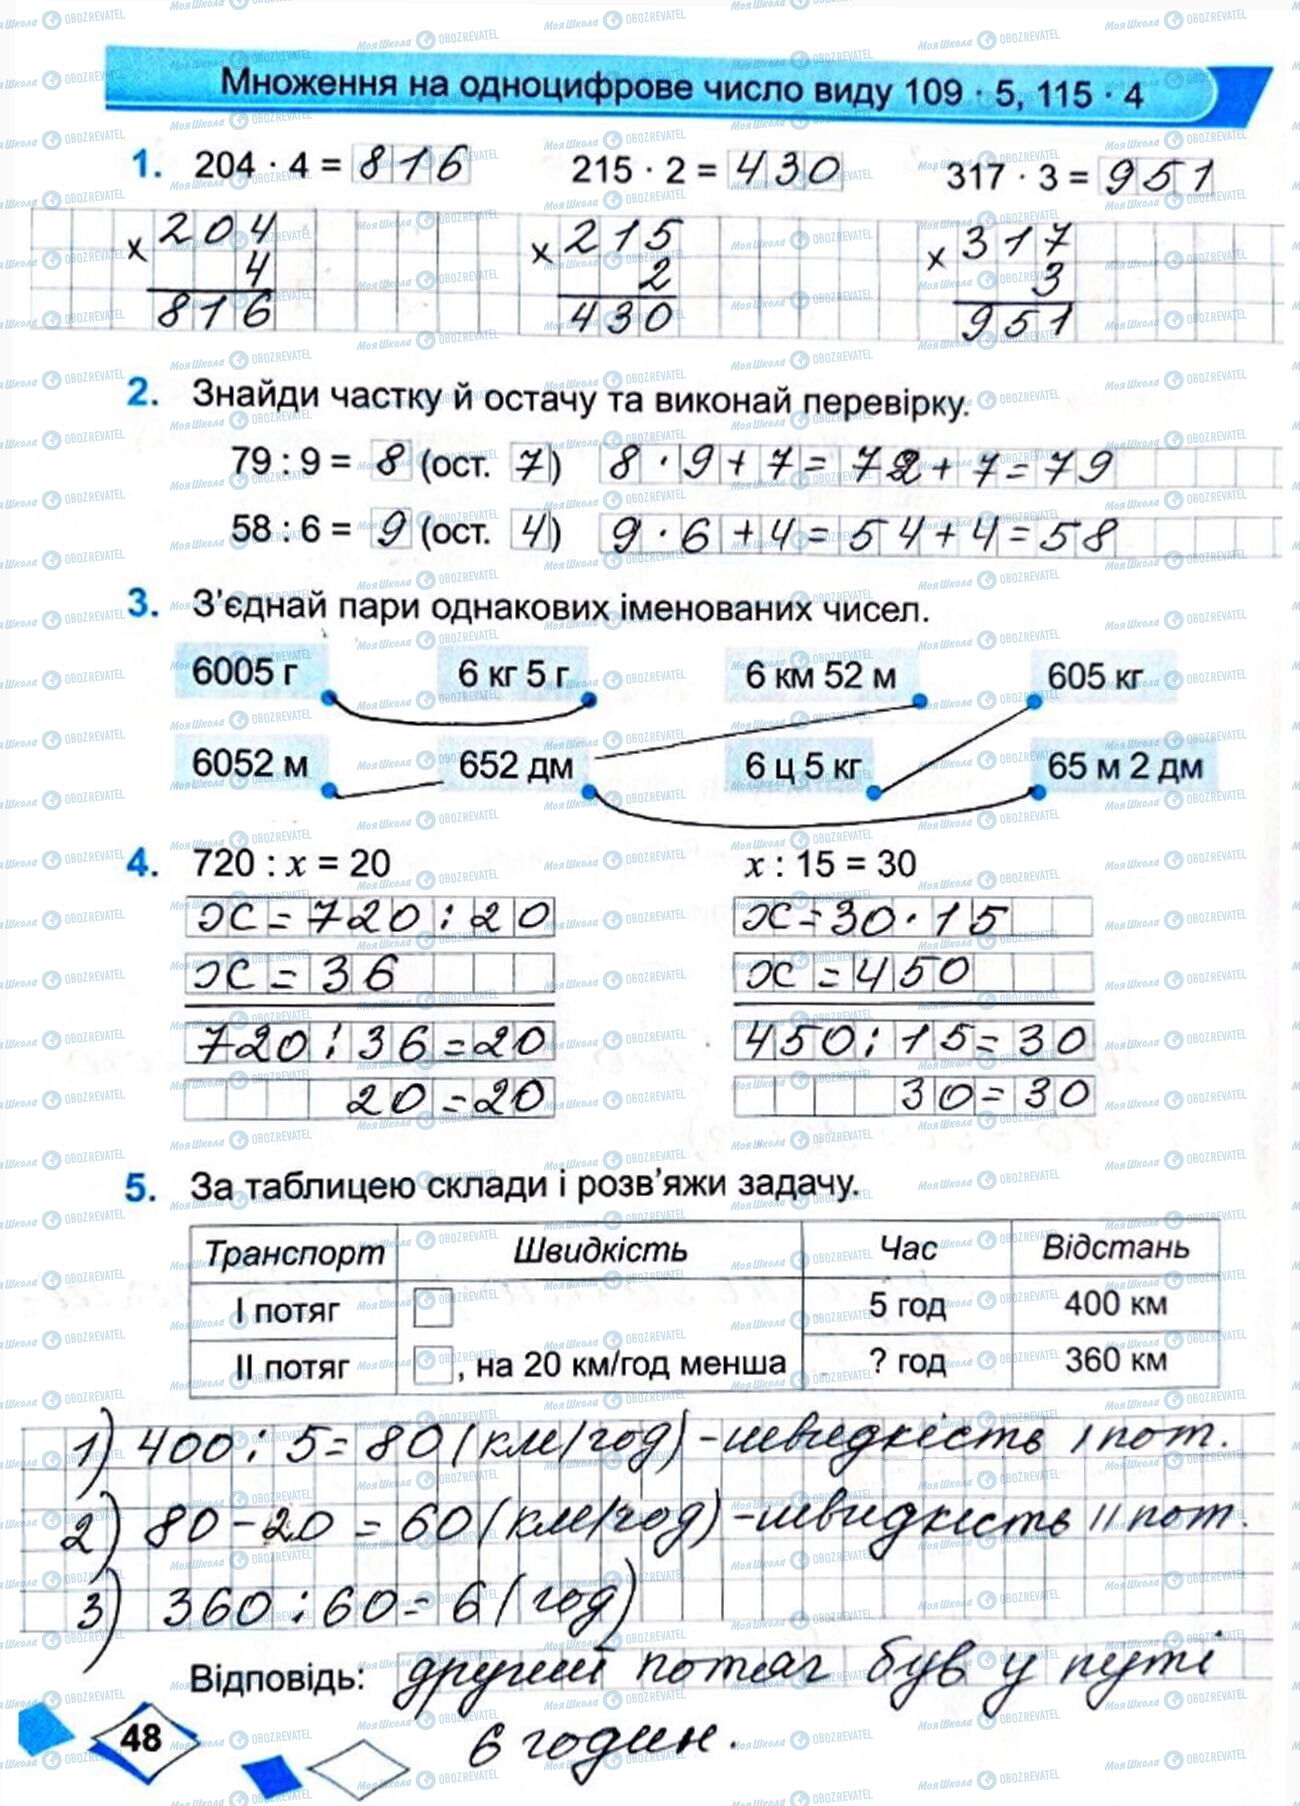 Множення на одноцифрове число виду 109 · 5, 115 · 4
1. 204 · 4 = 816 215 · 2 = 430 317 · 3 = 951
× 204 × 215 × 317
4 2 3
816 430 951
2. Знайди частку й остачу та виконай перевірку.
79 : 9 = 8 (ост. 7) 8 · 9 + 7 = 72 + 7 = 79
58 : 6 = 9 (ост. 4) 9 · 6 + 4 = 54 + 4 = 58
3. З’єднай пари однакових іменованих чисел.
6005 г 6 кг 5 г 6 км 52 м 605 кг
6052 м 652 дм 6 ц 5 кг 65 м 2 дм
4. 720 : x = 20 x : 15 = 30
x = 720 : 20 x = 30 · 15
x = 36 x = 450
720 : 36 = 20 450 : 15 = 30
20 = 20 30 = 30
5. За таблицею склади і розв’яжи задачу.
Транспорт Швидкість Час Відстань
І потяг 5 год 400 км
ІІ потяг , на 20 км/год менша ? год 360 км
1) 400 : 5 = 80 (км/год) – швидкість І пот.
2) 80 – 20 = 60 (км/год) – швидкість ІІ пот.
3) 360 : 60 = 6 (год)
Відповідь: другий потяг був у путі
6 годин.
48
МояШкола OBOZREVATEL